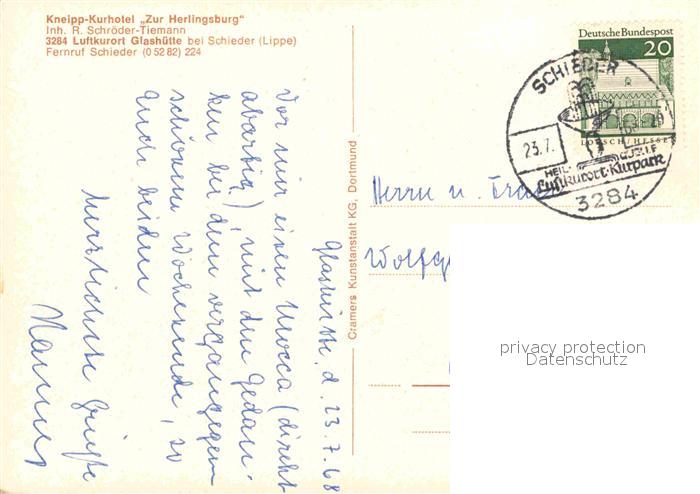 Kneipp-Kurhotel „Zur Herlingsburg"
Inh. R. Schröder-Tiemann
3284 Luftkurort Glashütte bei Schieder (Lippe)
Fernruf Schieder (0 52 82) 224
Deutsche Bundespost
20
LORSCH/HESSEN
SCHIEDER
23.7.
HEIL-QUELLE
Luftkurort·Kurpark
3284
Glashütte, d. 23.7.68
Vor mir einen Mocca (direkt
abartig), mit den Gedan-
ken bei dem vergangenen
schönen Wochenende, so
Euch beiden
herzlichste Grüße
Cramers Kunstanstalt KG, Dortmund
Herrn u. Frau
Wolfg
privacy protection
Datenschutz